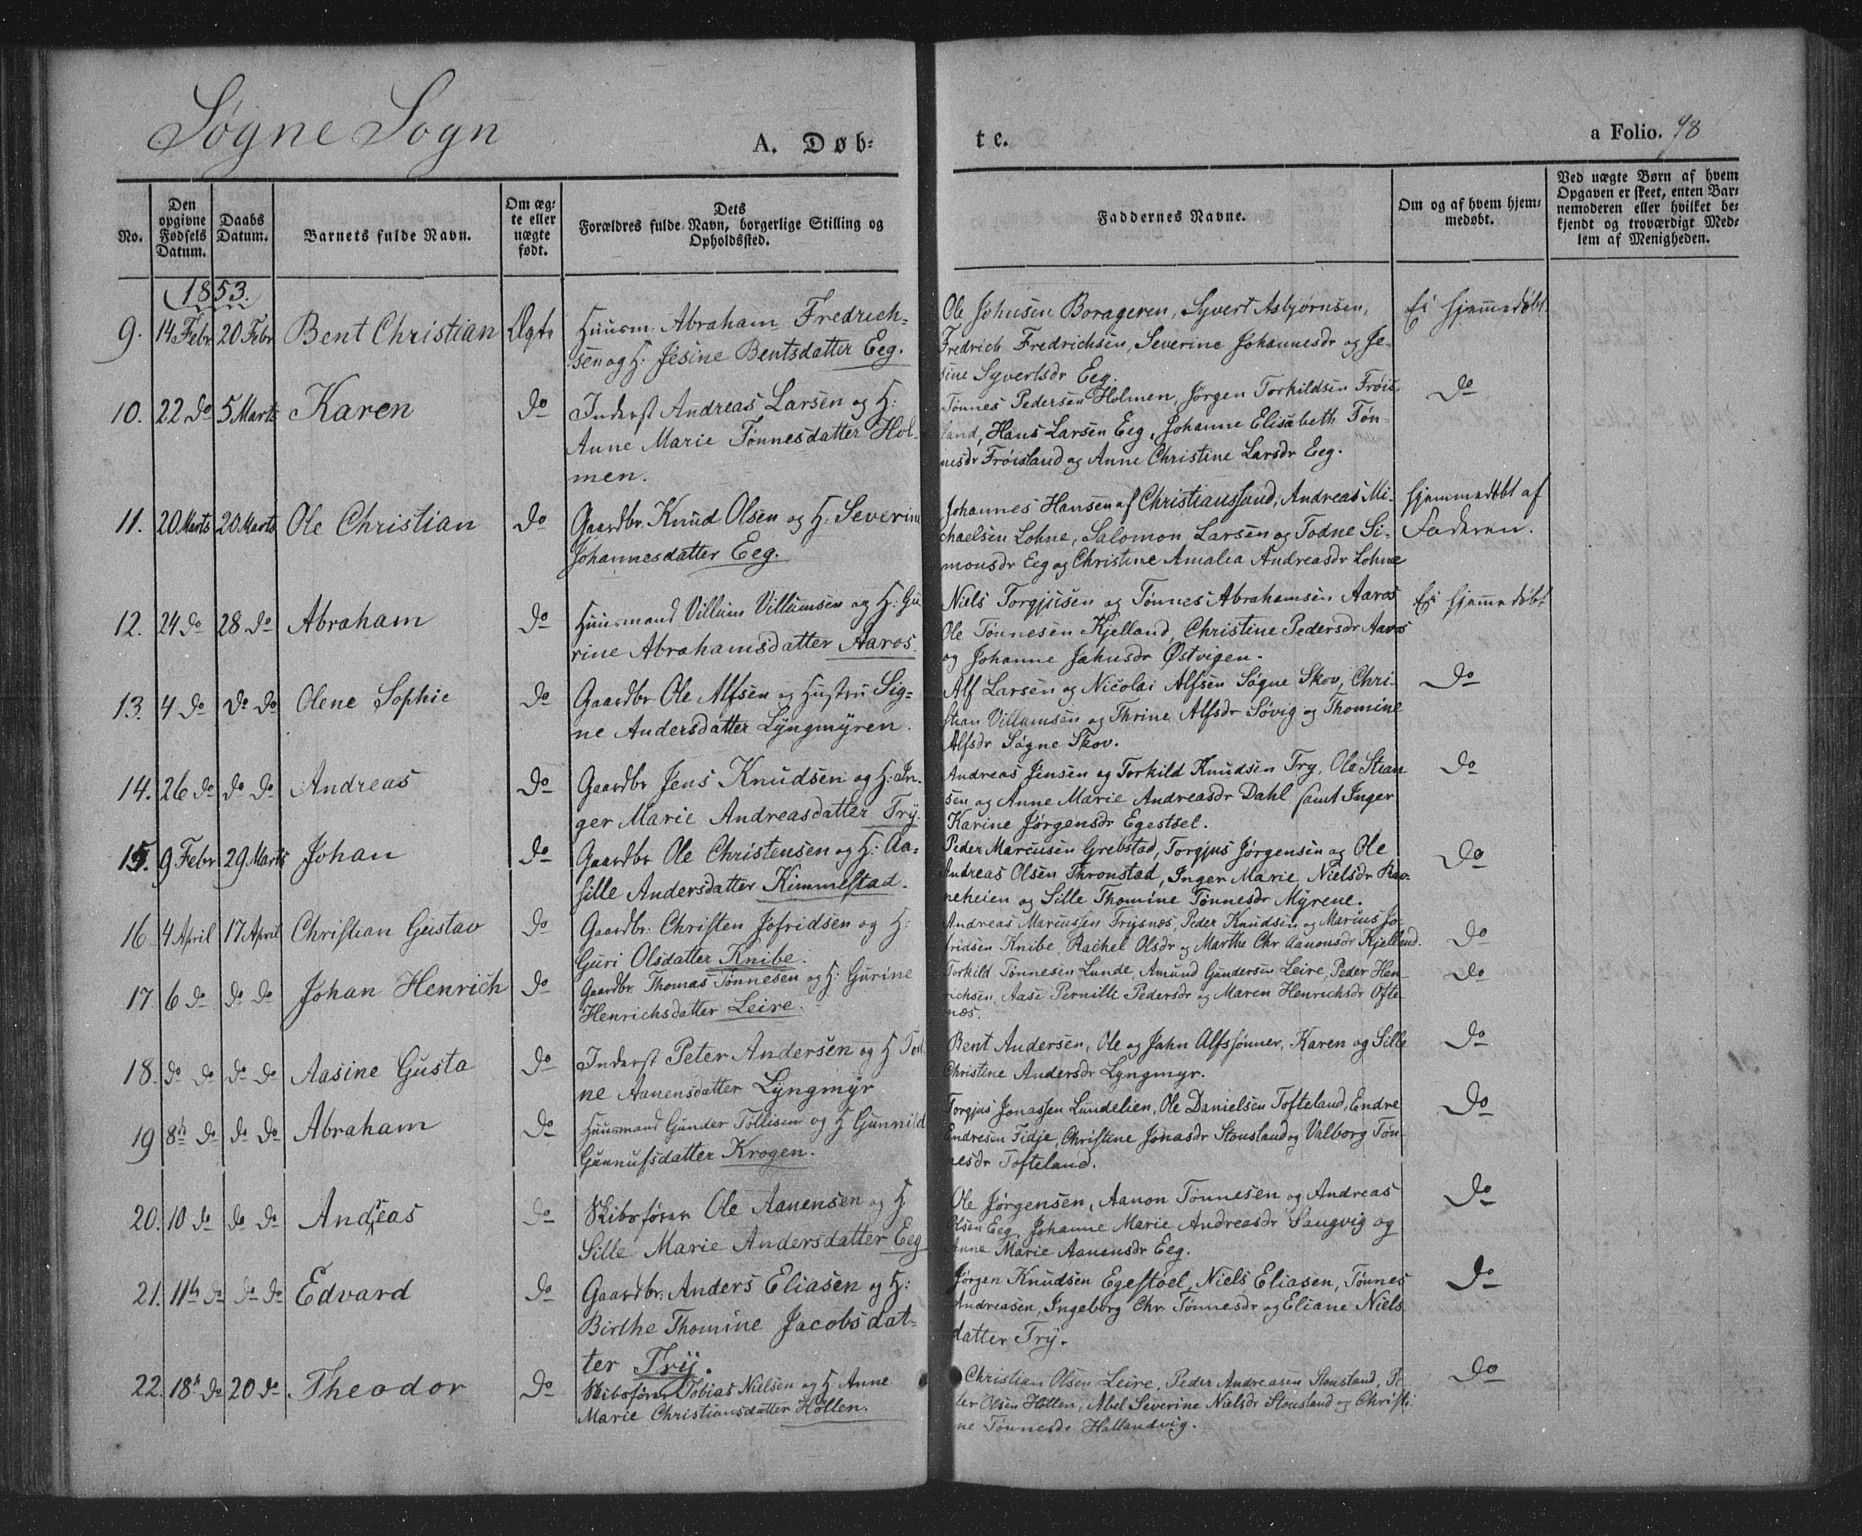 Søgne Sogn
A. Døb-
te.
a Folio. 98
No.
Den opgivne Fødsels Datum.
Daabs Datum.
Barnets fulde Navn.
Om æg-
te eller
uægte
født.
Dets
Forældres fulde Navn, borgerlige Stilling og
Opholdssted.
Faddernes Navne.
Om og af hvem hjem-
medøbt.
Ved uægte Børn af hvem
Opgaven er skeet, enten Bar-
nemoderen eller hvilket be-
kjendt og troværdigt Med-
lem af Menigheden.
1853.
9. 14 Febr 20 Febr Bent Christian Ægte Huusm. Abraham Fredrich-
sen og H. Jesine Bentsdatter Eeg.
Ole Johnsen Borageren, Syvert Asbjørnsen,
Fredrich Fredrichsen, Severine Johannesdr og Je-
sine Syvertsdr Eeg.
Ei hjemmedøbt
10. 22 do 5 Marts Karen do Inderst Andreas Larsen og H:
Anne Marie Tønnesdatter Hol-
men.
Tønnes Pedersen Holmen, Jørgen Torkildsen Frøis-
land, Hans Larsen Eeg, Johanne Elisabeth Tøn-
nesdr Frøisland og Anne Christine Larsdr Eeg.
do
11. 20 Marts 20 Marts Ole Christian do Gaardbr. Knud Olsen og H: Severine
Johannesdatter Eeg.
Johannes Hansen af Christianssand, Andreas Mi-
chaelsen Lohne, Salomon Larsen og Todne Si-
monsdr Eeg og Christine Amalia Andreasdr Lohne
hjemmedøbt af
Faderen.
12. 24 do 28 do Abraham do Huusmand Villum Villumsen og H: Gu
rine Abrahamsdatter Aaros.
Niels Torgjusen og Tønnes Abrahamsen Aaros
Ole Tønnesen Kjelland, Christine Pedersdr Aaros
og Johanne Jahusdr Østvigen.
Ei hjemmedøbt
13. 4 do do do Olene Sophie do Gaardbr Ole Alfsen og Hustru Sig-
ne Andersdatter Lyngmyren.
Alf Larsen og Nicolai Alfsen Søgne Skov, Chri-
stian Villumsen og Thrine Alfsdr Søvig og Thomine
Alfsdr Søgne Skov.
do
14. 26 do do do Andreas do Gaardbr Jens Knudsen og H: In-
ger Marie Andreasdatter Try.
Andreas Jensen og Torkild Knudsen Try, Ole Stian
sen og Anne Marie Andreasdr Dahl samt Inger
Karine Jørgensdr Egestøel.
do
15. 9 Febr 29 Marts Johan do Gaardbr Ole Christensen og H: Aa-
sille Andersdatter Kimmestad.
Peder Marcusen Grebstad, Torgjus Jørgensen og Ole
Andreas Olsen Thronstad, Inger Marie Nielsdr Rav-
neheien og Sille Thomine Tønnesdr Myrene.
do
16 4 April 17 April Christian Gustav do Gaardbr: Christen Jofridsen og H:
Guri Olsdatter Knibe.
Andreas Marcussen Trysnes, Peder Knudsen og Marius Jo-
fridsen Knibe, Rachel Olsdr og Marthe Chr Aanonsdr Kjelland.
do
17. 6 do do do Johan Henrich do Gaardbr. Thomas Tønnesen og H: Gurine
Henrichsdatter Leire.
Torkild Tønnesen Lunde, Amund Gundersen Leire, Peder Hen-
richsen, Aase Pernille Pedersdr og Maren Henrichsdr Ofte-
næs.
do
18. do do do do Aasine Gusta do Inderst Peter Andersen og H Tod-
ne Aanensdatter Lyngmyr
Bent Andersen, Ole og Jahn Alfssønner, Karen og Sille
Christine Andersdr Lyngmyr.
do
19 8de do do do Abraham do Huusmand Gunder Tollisen og H Gunnild
Gunnufsdatter Krogen.
Torgjus Jonassen Lundelien, Ole Danielsen Tofteland, Endre
Endresen Fidje, Christine Jonasdr Stousland og Valborg Tøn-
nesdr Tofteland.
do
20. 10 do do do Andreas do Skibsfører Ole Aanensen og H
Sille Marie Andersdatter Eeg
Ole Jørgensen, Aanon Tønnesen og Andreas
Olsen Eeg, Johanne Marie Andreasdr Langvig og
Anne Marie Aanensdr Eeg.
do
21. 11te do do do Edvard do Gaardbr. Anders Eliasen og H:
Birthe Thomine Jacobsdat-
ter Try.
Jørgen Knudsen Egestøel, Niels Eliasen, Tønnes
Andreasen, Ingeborg Chr. Tønnesdr og Eliane Niels
datter Try.
do
22. 18de do 20 do Theodor do Skibsfører Tobias Nielsen og H Anne
Marie Christiansdatter Høllen.
Christian Olsen Leire, Peder Andreasen Stousland, Pe
der Olsen Høllen, Abel Severine Nielsdr Stousland og Christi
ne Tønnesdr Hallandvig.
do